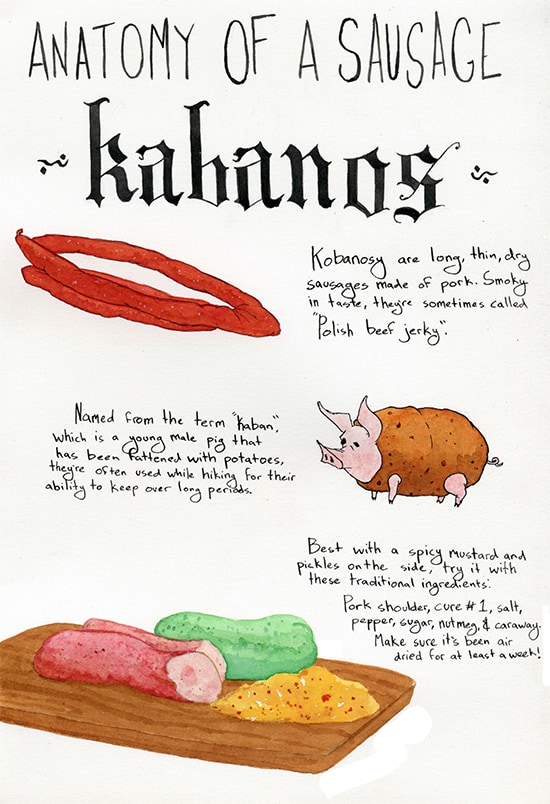 ANATOMY OF A SAUSAGE
kabanos
Kobanosy are long, thin, dry
sausages made of pork. Smoky
in taste, they're sometimes called
"Polish beef jerky".
Named from the term "kaban",
which is a young male pig that
has been fattened with potatoes,
they're often used while hiking for their
ability to keep over long periods.
Best with a spicy mustard and
pickles on the side, try it with
these traditional ingredients:
Pork shoulder, cure #1, salt,
pepper, sugar, nutmeg, & caraway.
Make sure it's been air
dried for at least a week!